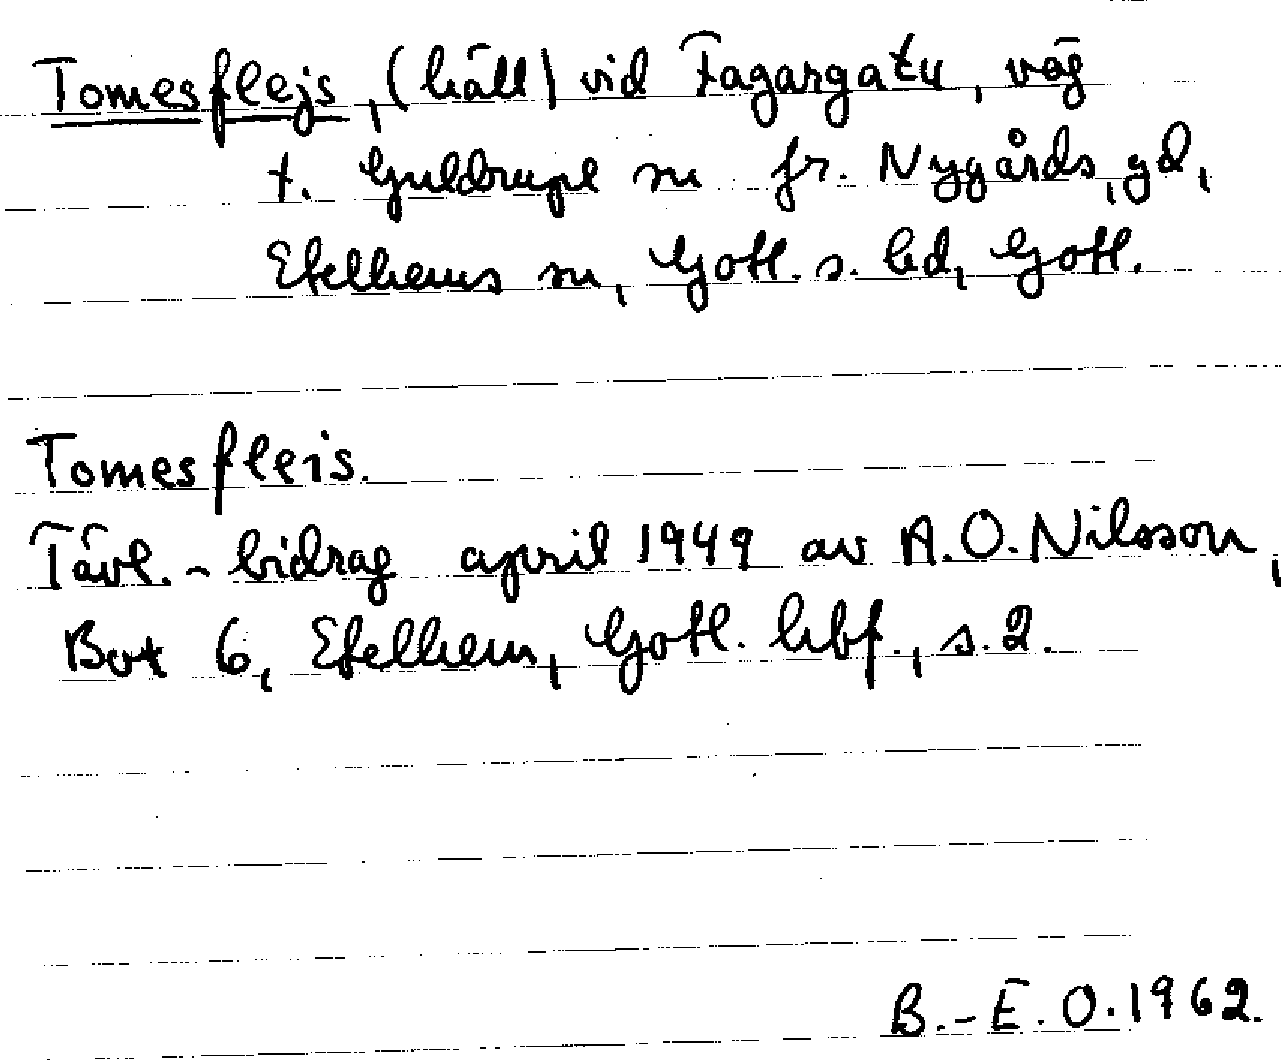 Tomesflejs, (häll) vid Fagargatu, väg
t. Guldrupe sn fr. Nygårds, gd,
Etelhems sn, Gotl. s. hd, Gotl.
Tomesfleis.
Tävl.-bidrag april 1949 av A.O. Nilsson,
Box 6, Etelhem, Gotl. hbf., s. 2.
B.-E. O. 1962.